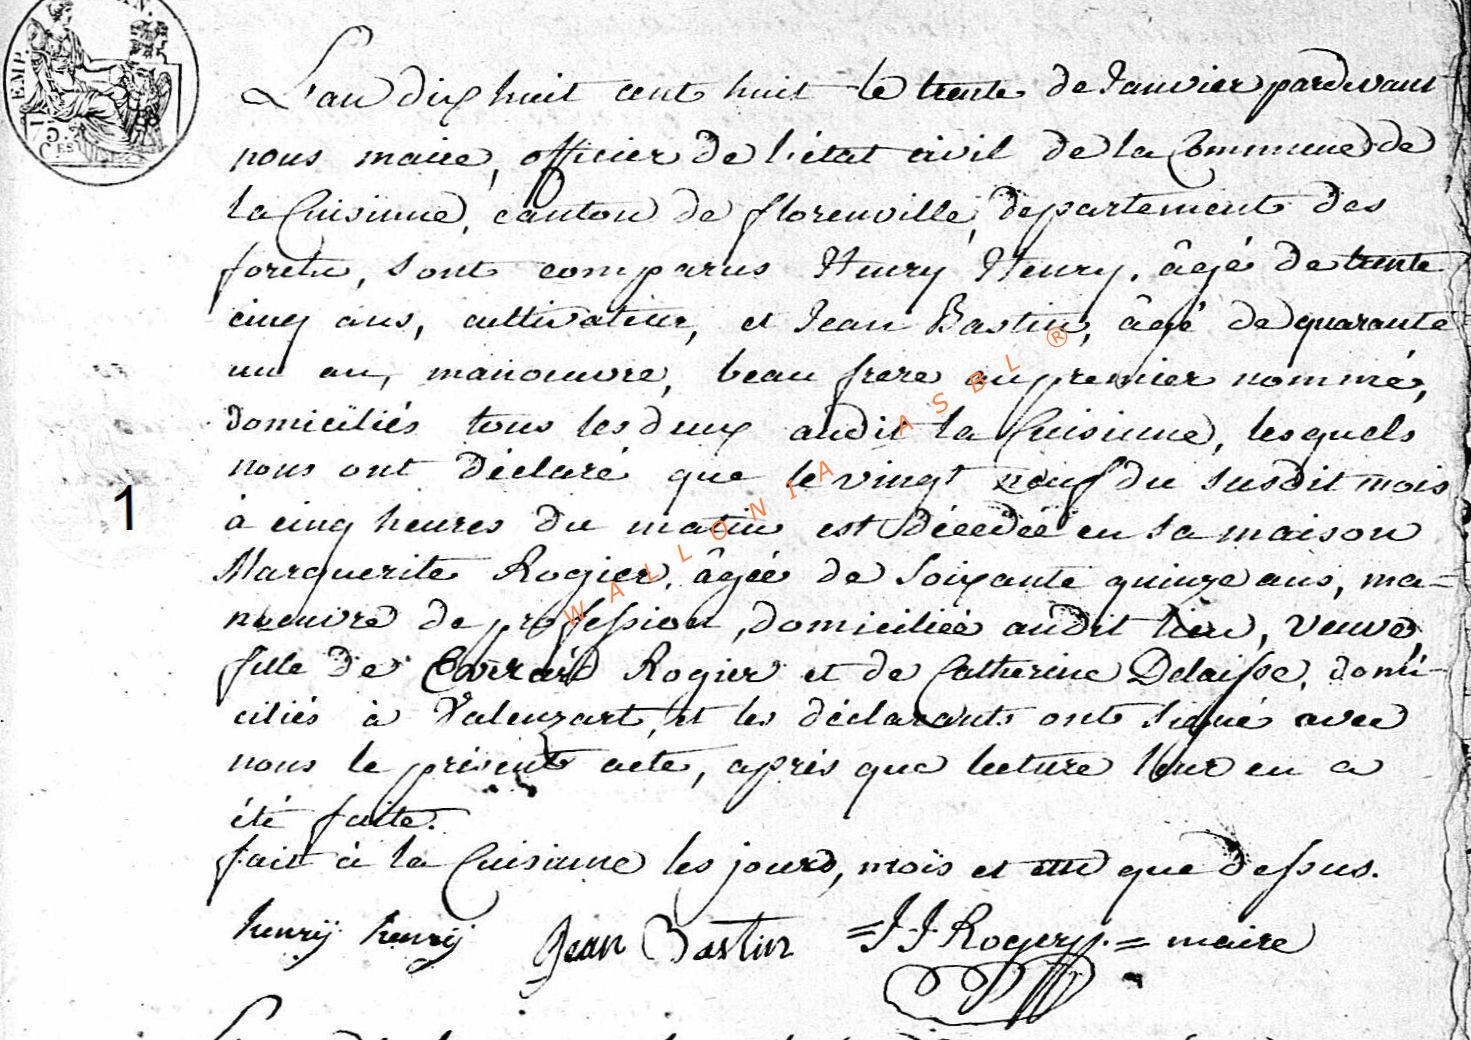 EMP.
75.
C.ES
L'an dix huit cent huit le trente de Janvier pardevant
nous maire, officier de l'état civil de la Commune de
la Cuisinne, canton de florenville, departement des
forets, sont comparus Henry Henry, âgé de trente
cinq ans, cultivateur, et Jean Bastin, âgé de quarante
un an, manoeuvre, beau frere au premier nommé,
domiciliés tous les deux audit la Cuisinne, lesquels
nous ont déclaré que le vingt neuf du susdit mois
1
à cinq heures du matin est décedée en sa maison
Marguerite Rogier, âgée de soixante quinze ans, ma-
noeuvre de profession, domiciliée audit lieu, veuve,
fille de Everard Rogier et de Catherine Delaisse, domi-
ciliés à Valenzart, et les déclarants ont signé avec
nous le présent acte, après que lecture leur en a
été faite.
fait à la Cuisinne les jours, mois et an que dessus.
henrÿ henrÿ Jean Bastin =J J Rogery.= maire
WALLONIA ASBL ®